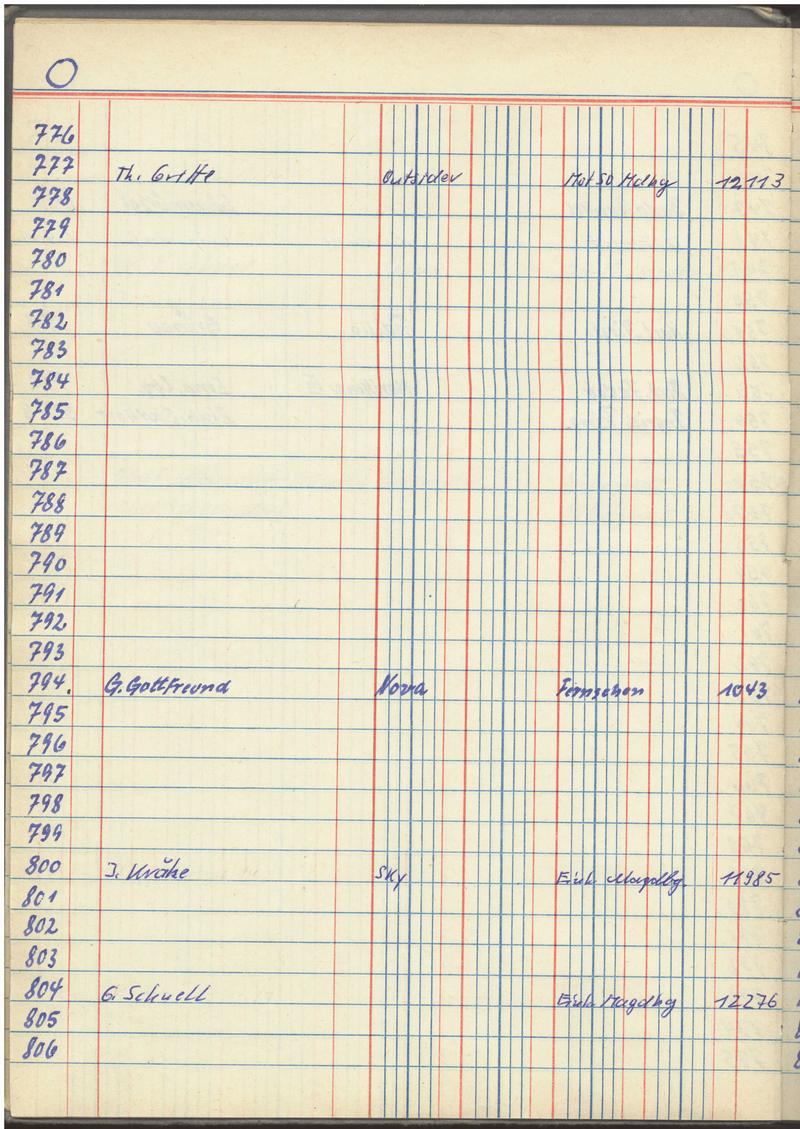 O
776
777 Th. Outsider Mot SO Mdbg 12113
778
779
780
781
782
783
784
785
786
787
788
789
790
791
792
793
794. G. Gottfreund Nova Fernsehen 1043
795
796
797
798
799
800 J. Krähe Sky Einh. Magdbg. 11985
801
802
803
804 G. Schnell Einh. Magdbg 12276
805
806